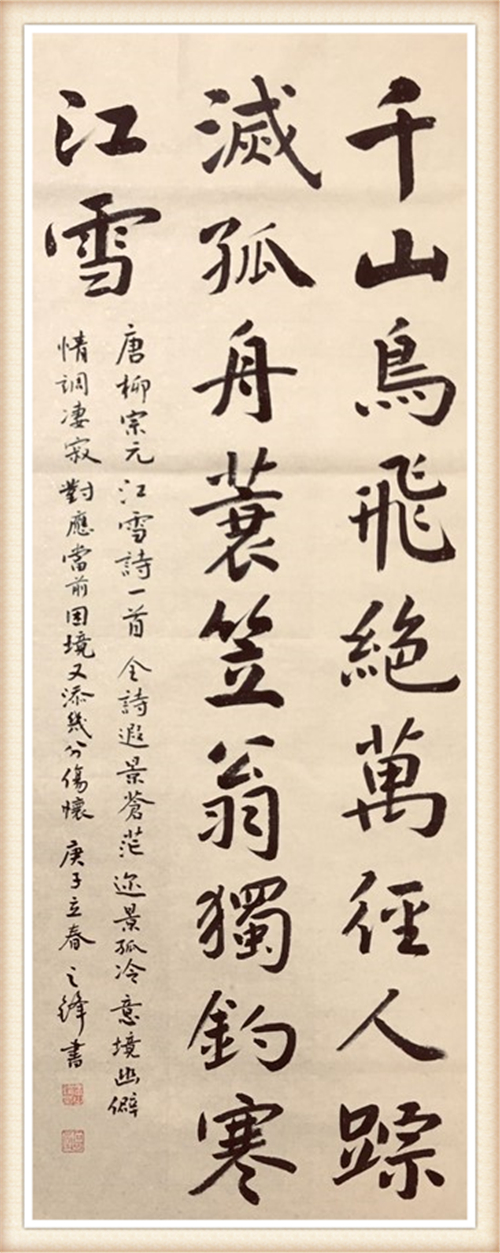 千山鳥飛絶萬徑人踪
滅孤舟蓑笠翁獨釣寒
江雪
唐柳宗元江雪詩一首全詩遐景蒼茫迩景孤冷意境幽僻
情調凄寂對應當前困境又添幾分傷懷庚子立春之鋒書